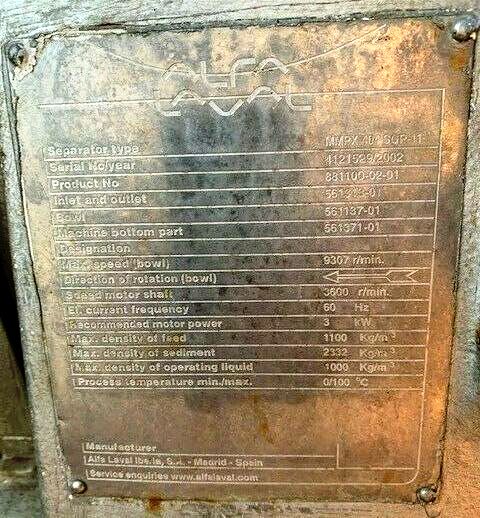 ALFA
LAVAL
Separator type MMPX
Serial No/year 4121529/2002
Product No 881100-02-01
Inlet and outlet
Bowl 561137-01
Machine bottom part 561371-01
Designation
Max. speed (bowl) 9307 r/min.
Direction of rotation (bowl)
Speed motor shaft 3600 r/min.
El. current frequency 60 Hz
Recommended motor power 3 kW
Max. density of feed 1100 Kg/m³
Max. density of sediment 2332 Kg/m³
Max. density of operating liquid 1000 Kg/m³
Process temperature min./max. 0/100 °C
Manufacturer
Alfa Laval Iberia, S.A. - Madrid - Spain
Service enquiries www.alfalaval.com